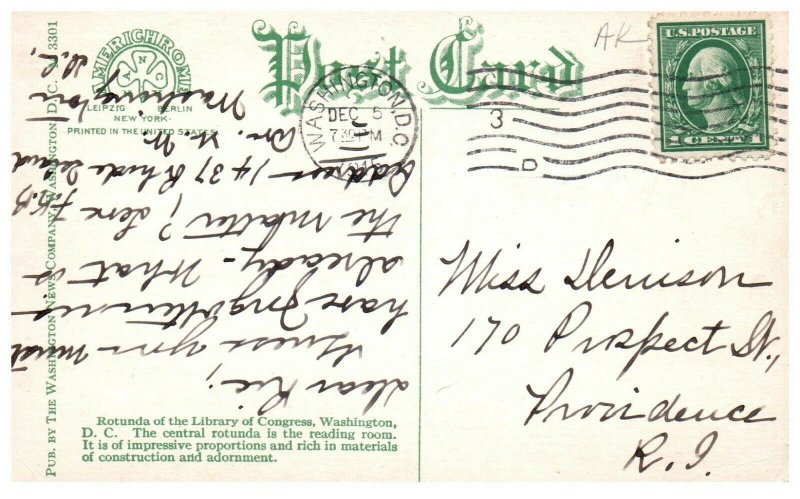 Post Card
AMERICHROME
A N C
LEIPZIG BERLIN
NEW YORK
PRINTED IN THE UNITED STATES
WASHINGTON, D.C.
DEC 5
7 30 PM
3
D
AR
U.S. POSTAGE
1 CENT 1
Dear Rie;
Guess you must
have forgotten me
already - What is
the matter? Love F.K.B
Address - 1437 Rhode Island
Av. N.W.
Washington
D.C.
Miss Denison
170 Prospect St.,
Providence
R.I.
Rotunda of the Library of Congress, Washington,
D. C. The central rotunda is the reading room.
It is of impressive proportions and rich in materials
of construction and adornment.
PUB. BY THE WASHINGTON NEWS COMPANY, WASHINGTON, D. C. 3301